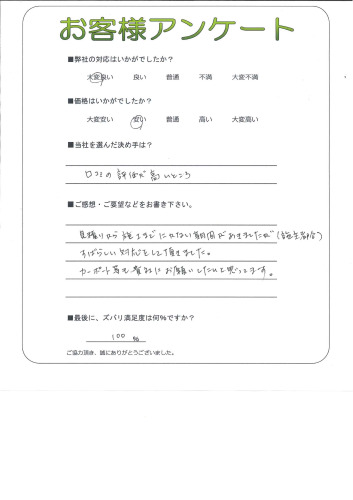 お客様アンケート
■弊社の対応はいかがでしたか?
大変良い 良い 普通 不満 大変不満
■価格はいかがでしたか?
大変安い 安い 普通 高い 大変高い
■当社を選んだ決め手は?
口コミの評価が高いところ
■ご感想・ご要望などをお書き下さい。
見積りから施工までに少ない時間があきましたが
すばらしい対応をして頂きました。
カーポート等も貴社にお願いしたいと思ってます。
■最後に、ズバリ満足度は何%ですか?
100 %
ご協力頂き、誠にありがとうございました。